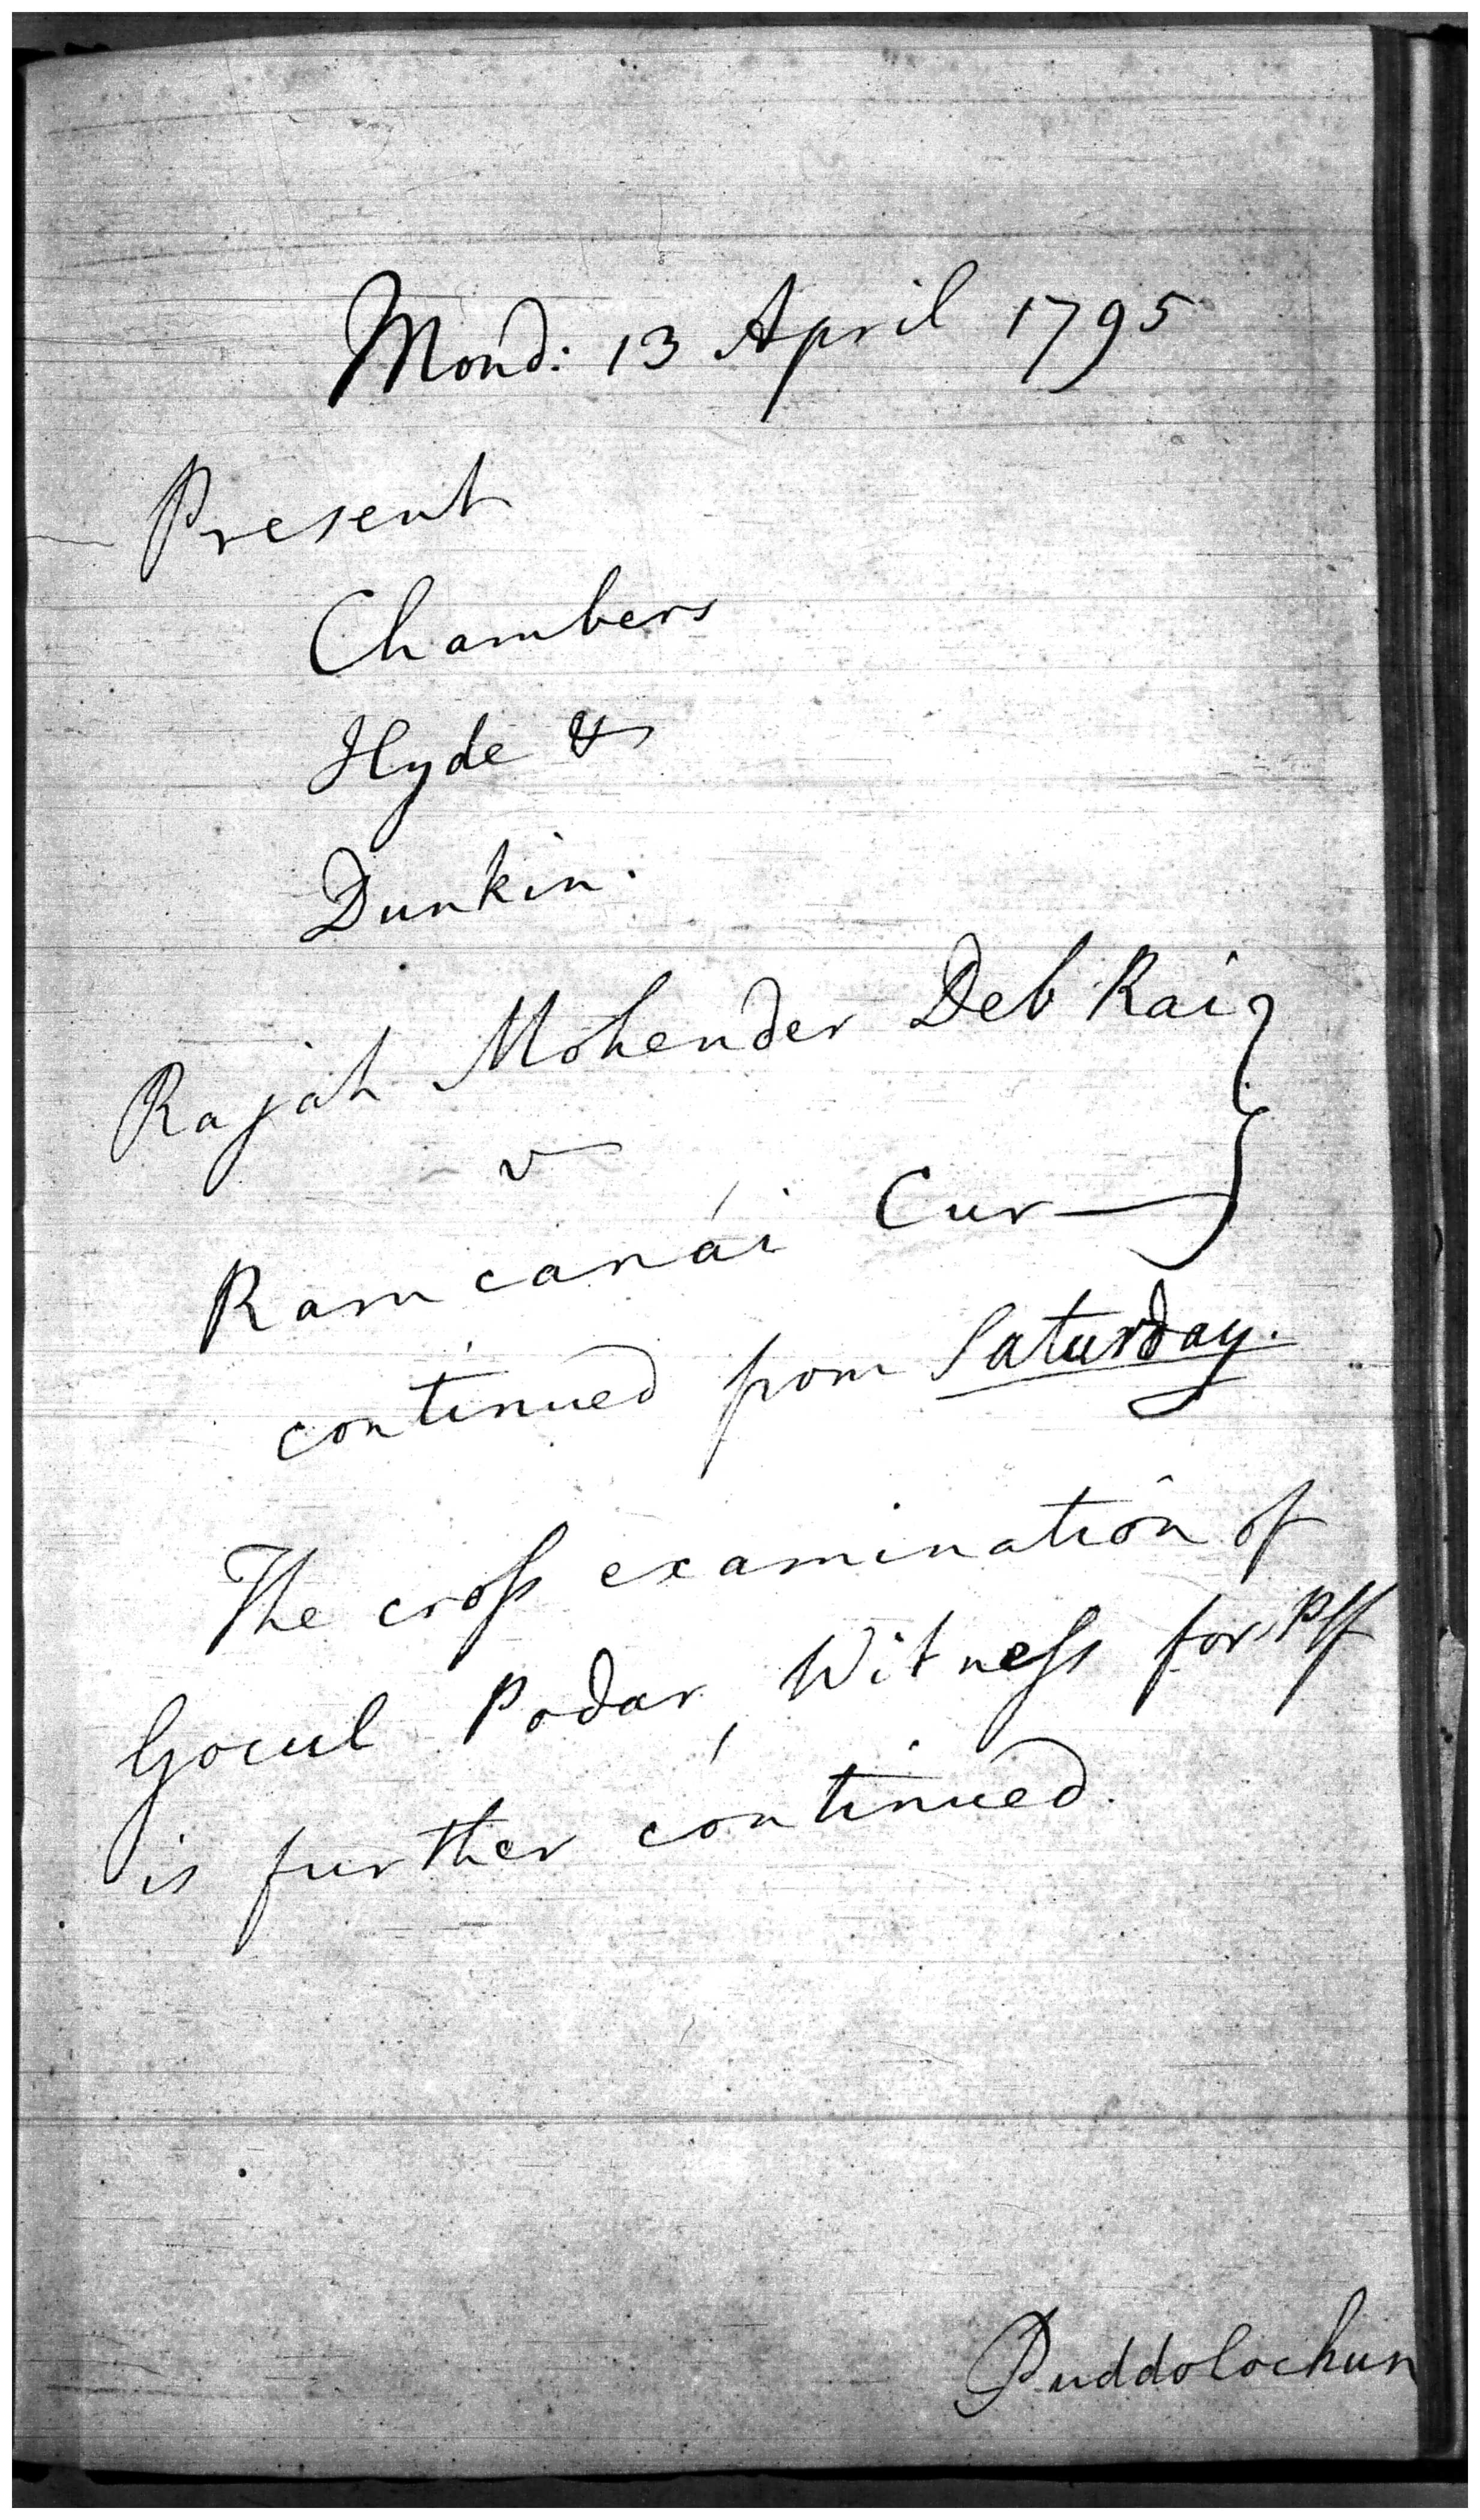 Mond: 13 April 1795
Present
Chambers
Hyde &
Dunkin.
Rajah Mohender Deb Rai
v
Ramcanái Cur
continued from Saturday.
The cross examination of
Gocul Podar, Witness for Plf
is further continued.
Puddolochun